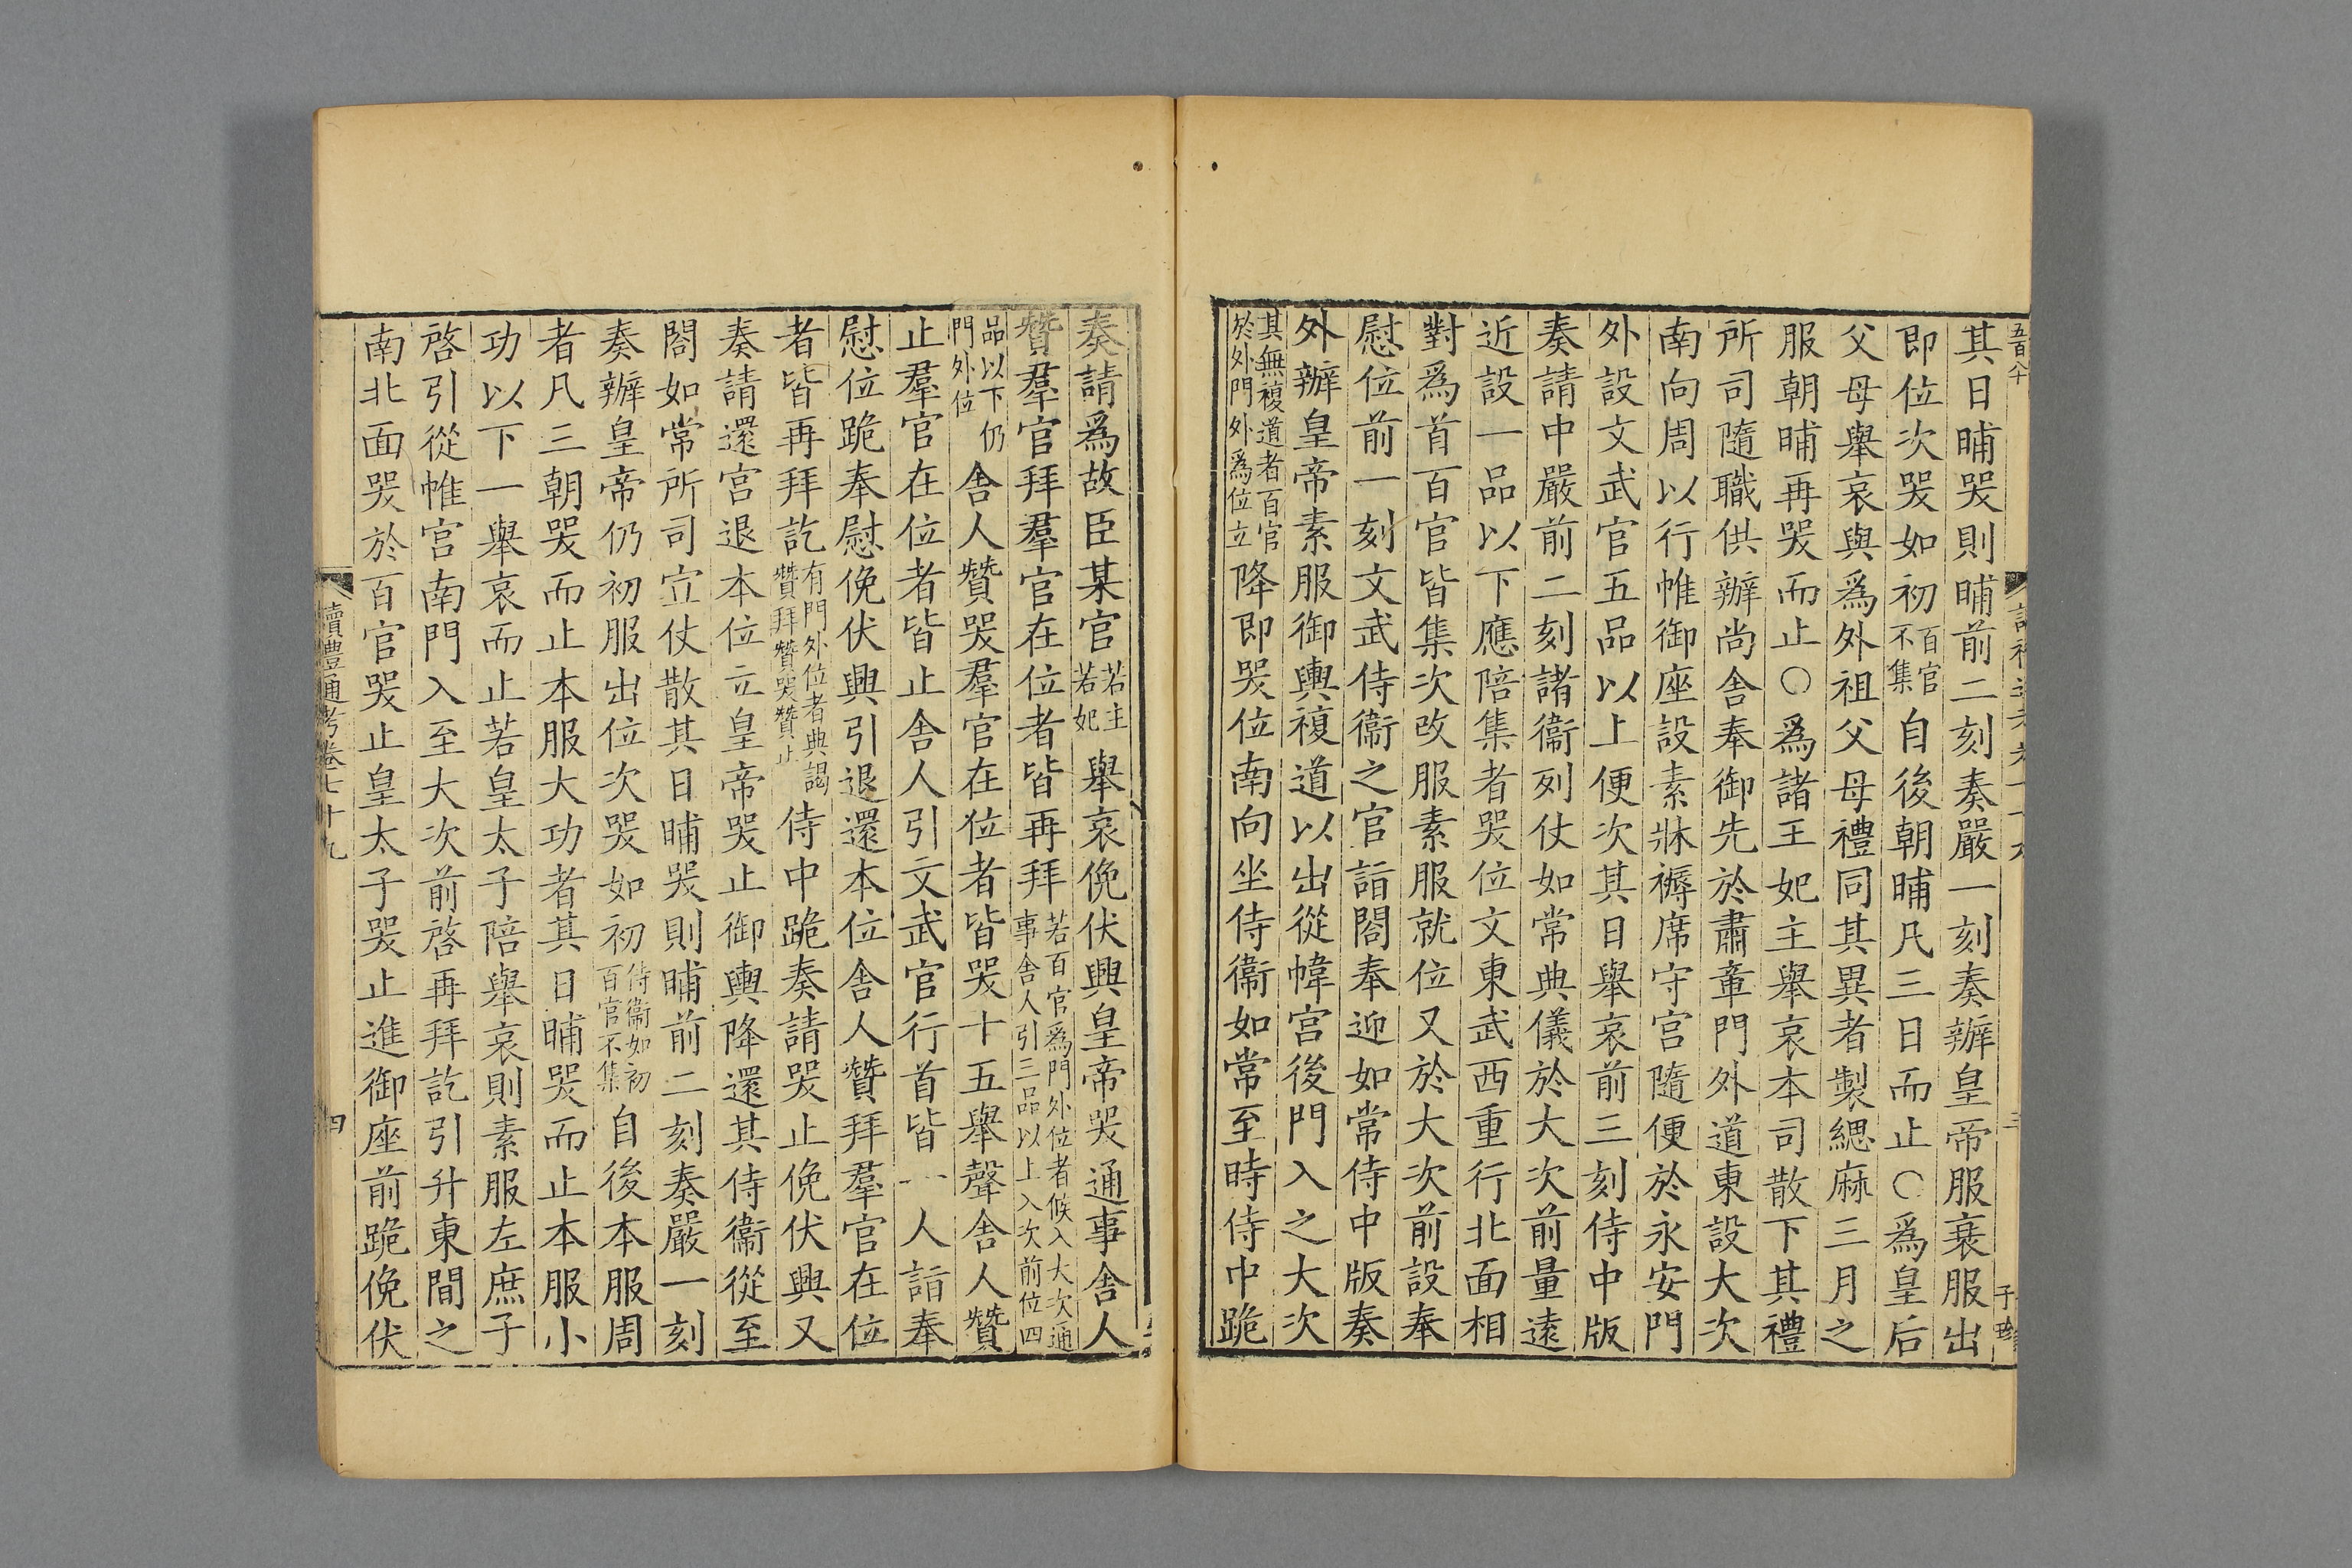 其日晡哭則晡前二刻奏嚴一刻奏辦皇帝服衰服出
即位次哭如初百官不集自後朝晡凡三日而止○爲皇后
父母舉哀與爲外祖父母禮同其異者製緦麻三月之
服朝晡再哭而止○爲諸王妃主舉哀本司散下其禮
所司隨職供辦尚舍奉御先於肅章門外道東設大次
南向周以行帷御座設素牀褥席守宮隨便於永安門
外設文武官五品以上便次其日舉哀前三刻侍中版
奏請中嚴前二刻諸衞列仗如常典儀於大次前量遠
近設一品以下應陪集者哭位文東武西重行北面相
對爲首百官皆集次改服素服就位又於大次前設奉
慰位前一刻文武侍衞之官詣閤奉迎如常侍中版奏
外辦皇帝素服御輿複道以出從幃宮後門入之大次
其無複道者百官於外門外爲位立降即哭位南向坐侍衞如常至時侍中跪
奏請爲故臣某官若主若妃舉哀俛伏興皇帝哭通事舍人
贊羣官拜羣官在位者皆再拜若百官爲門外位者候入大次通事舍人引三品以上入次前位四
品以下仍門外位舍人贊哭羣官在位者皆哭十五舉聲舍人贊
止羣官在位者皆止舍人引文武官行首皆一人詣奉
慰位跪奉慰俛伏興引退還本位舍人贊拜羣官在位
者皆再拜訖有門外位者典謁贊拜贊哭贊止侍中跪奏請哭止俛伏興又
奏請還宮退本位立皇帝哭止御輿降還其侍衞從至
閤如常所司宣仗散其日晡哭則晡前二刻奏嚴一刻
奏辦皇帝仍初服出位次哭如初侍衞如初百官不集自後本服周
者凡三朝哭而止本服大功者其日晡哭而止本服小
功以下一舉哀而止若皇太子陪舉哀則素服左庶子
啓引從帷宮南門入至大次前啓再拜訖引升東間之
南北面哭於百官哭止皇太子哭止進御座前跪俛伏
讀禮通考卷七十九
四
五百八十
三
子珍